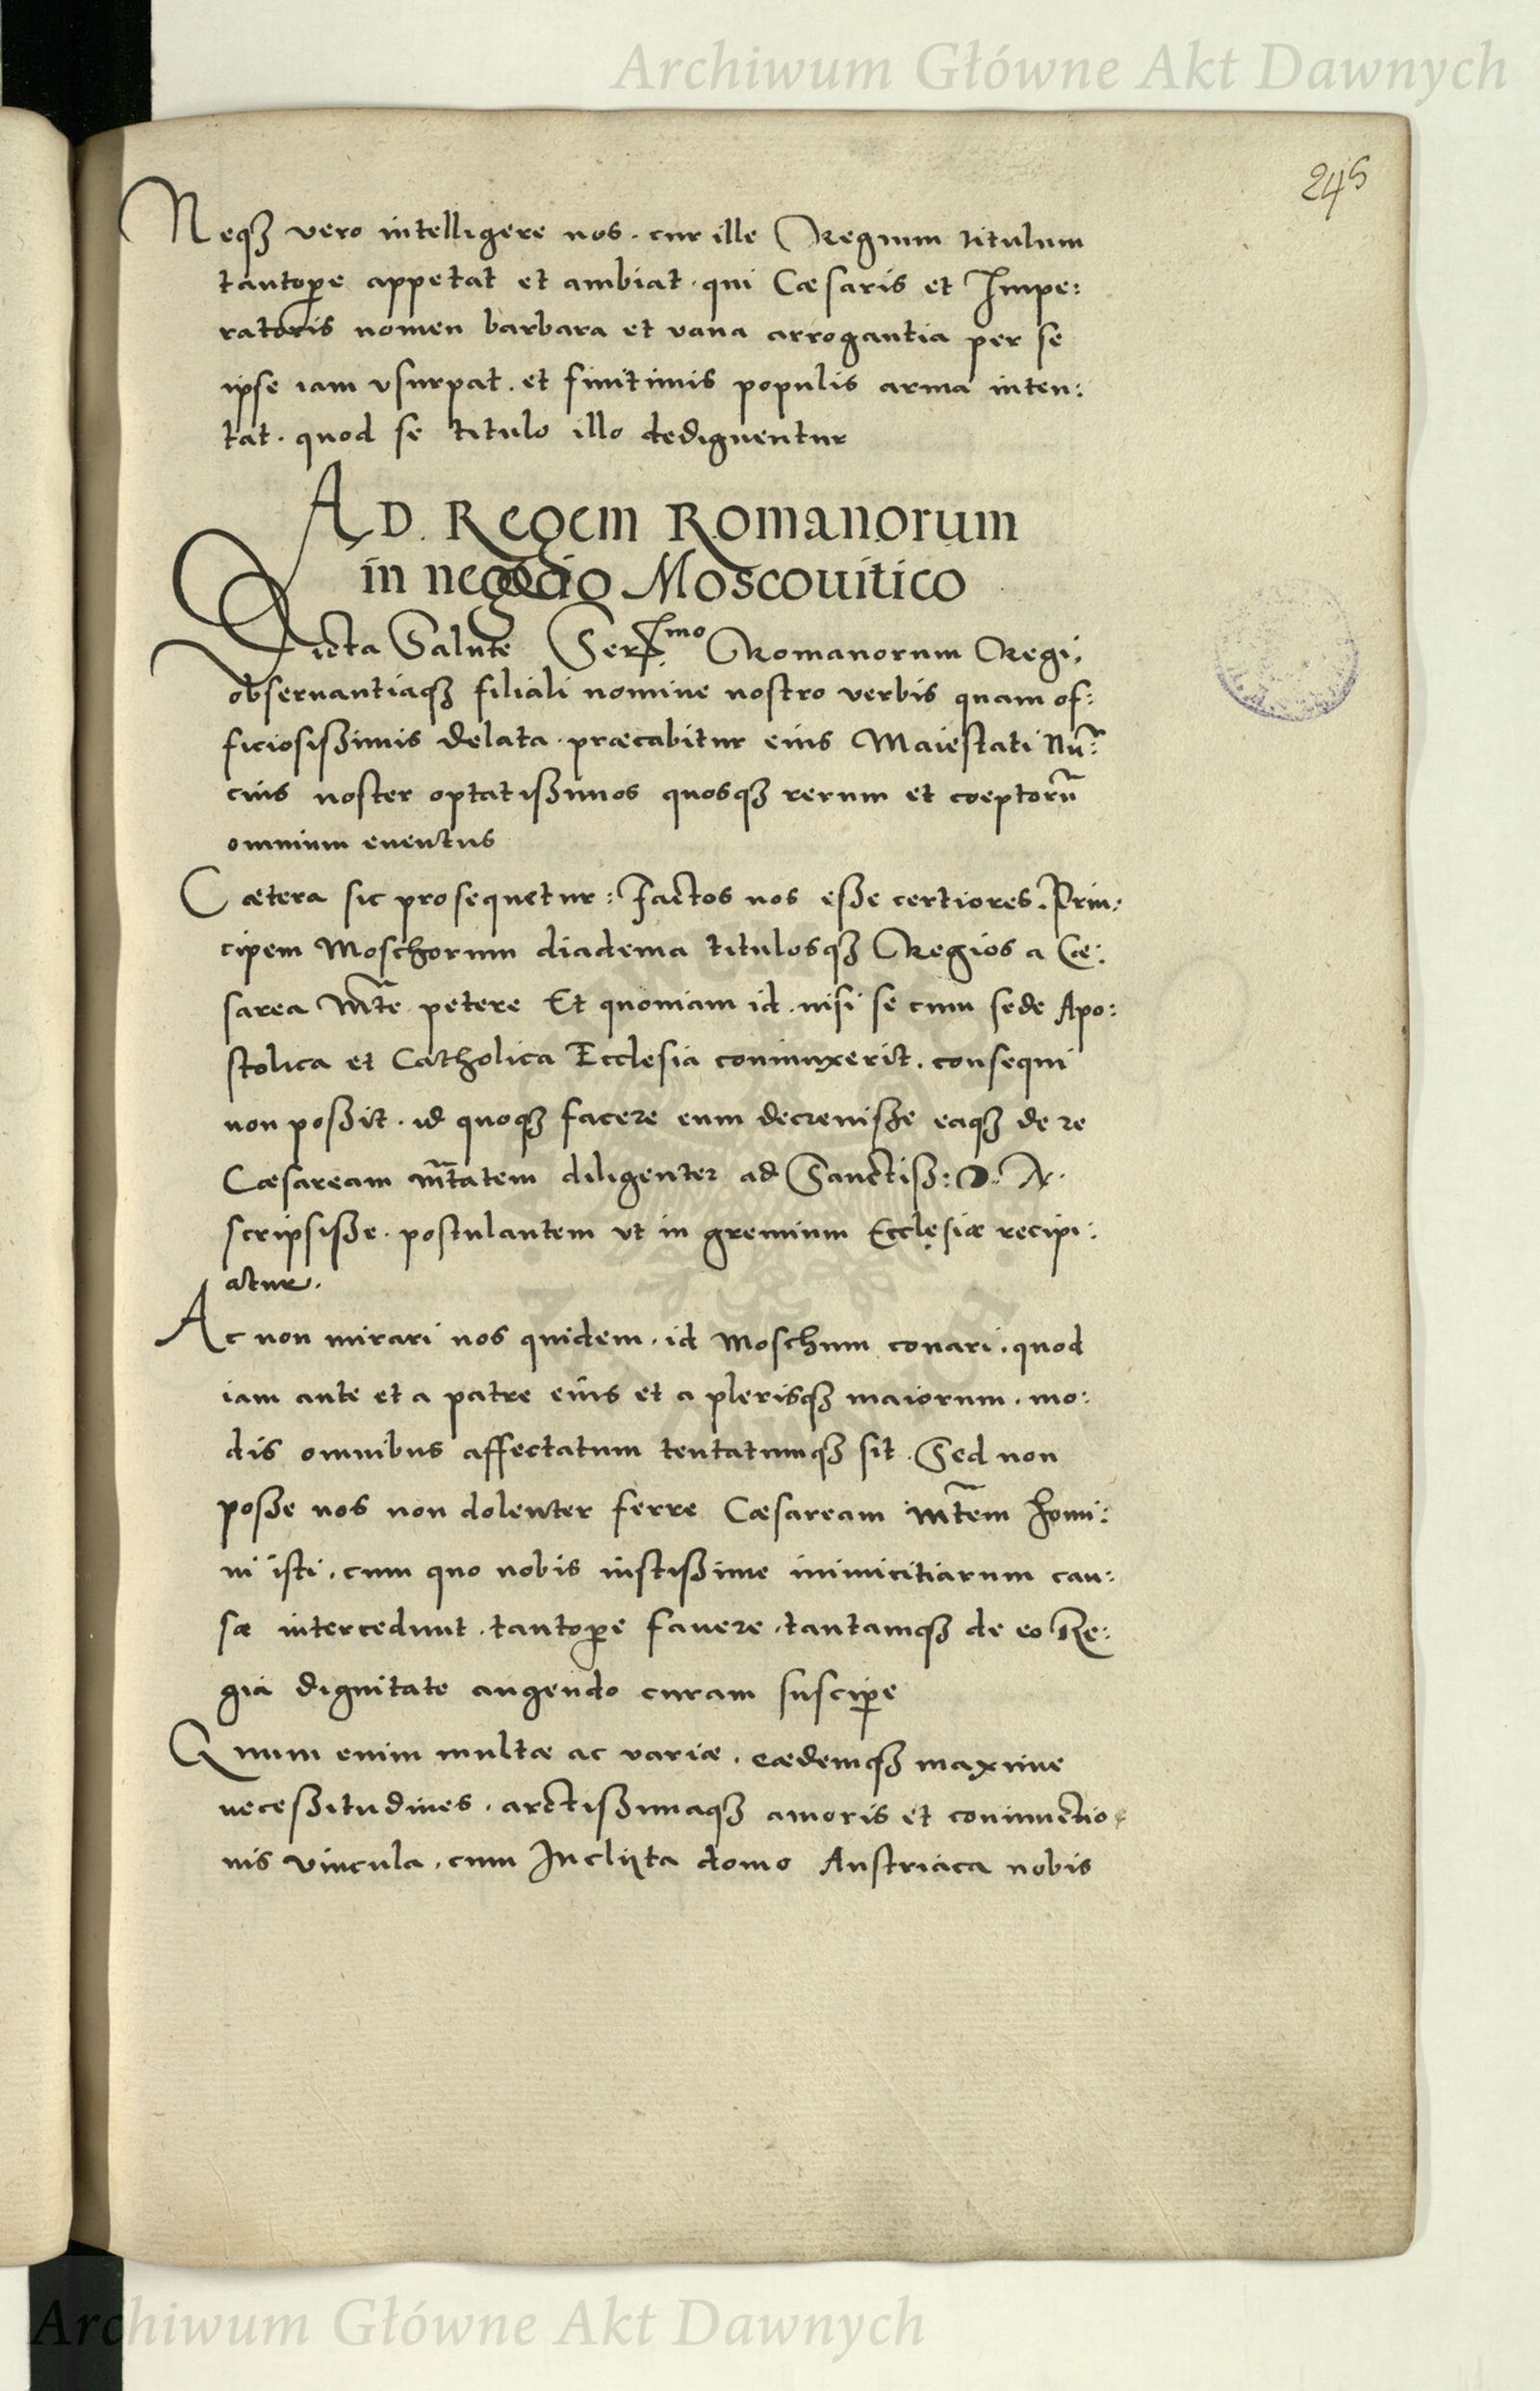 Archiwum Główne Akt Dawnych
245
Neqꝫ vero intelligere nos. cur ille Regium titulum
tantoꝑe appetat et ambiat. qui Cæsaris et Impe:
ratoris nomen barbara et vana arrogantia per se
ipse iam vsurpat. et finitimis populis arma inten:
tat. quod se titulo illo dedignentur
AD. Regem Romanorum
in negocio Moscouitico
Dicta Salute Serᵐᵒ Romanorum Regi,
obseruantiaqꝫ filiali nomine nostro verbis quam of:
ficiosißimis delata. præcabitur eius Maiestati Nũ:
cius noster optatißimos quosqꝫ rerum et cœptorũ
omnium euentus
Cætera sic prosequetur: Factos nos eße certiores. Prin:
cipem Moschorum diadema titulosqꝫ Regios a Cæ:
sarea Mᵗ̃e petere Et quoniam id. nisi se cum sede Apo:
stolica et Catholica Ecclesia coniunxerit. consequi
non poßit. id quoqꝫ facere eum decreuiße eaqꝫ de re
Cæsaream Mᵗ̃tatem diligenter ad Sanctiß: D. N.
scripsiße. postulantem vt in gremium Ecclesiæ recipi:
atur.
Ac non mirari nos quidem. id Moschum conari. quod
iam ante et a patre eius et a plerisqꝫ maiorum. mo:
dis omnibus affectatum tentatumqꝫ sit. Sed non
poße nos non dolenter ferre Cæsaream Mᵗ̃em homi:
ni isti. cum quo nobis iustißime inimicitiarum cau:
sæ intercedunt. tantoꝑe fauere. tantamqꝫ de eo Re:
gia dignitate augendo curam susciꝑe
Quum enim multæ ac variæ. eædemqꝫ maxime
neceßitudines. arctißimaqꝫ amoris et coniunctio:
nis vincula. cum Inclyta domo Austriaca nobis
Archiwum Główne Akt Dawnych